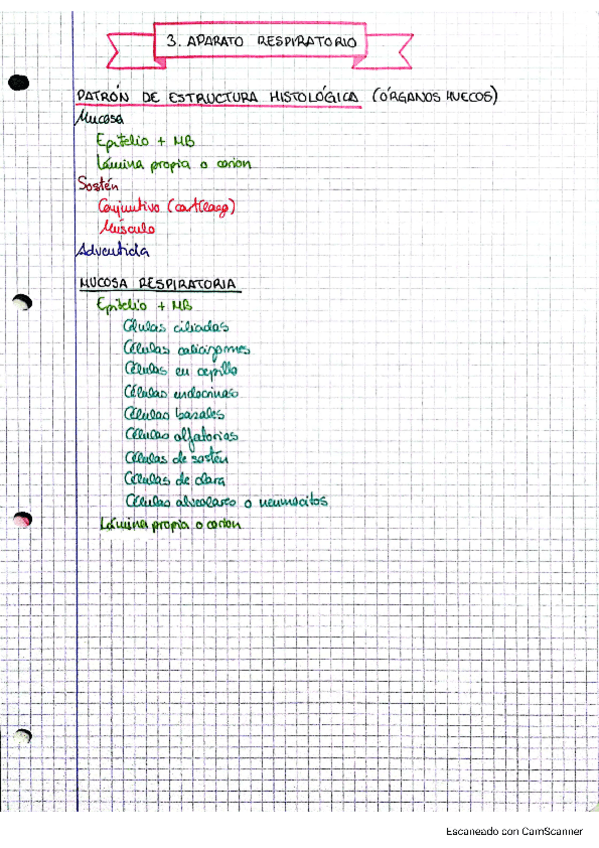 3. APARATO RESPIRATORIO
PATRÓN DE ESTRUCTURA HISTOLÓGICA (ÓRGANOS HUECOS)
Mucosa
Epitelio + MB
Lámina propia o corion
Sostén
Conjuntivo (cartílago)
Músculo
Adventicia
MUCOSA RESPIRATORIA
Epitelio + MB
Células ciliadas
Células caliciformes
Células en cepillo
Células endocrinas
Células basales
Células olfatorias
Células de sostén
Células de clara
Células alveolares o neumocitos
Lámina propia o corion
Escaneado con CamScanner